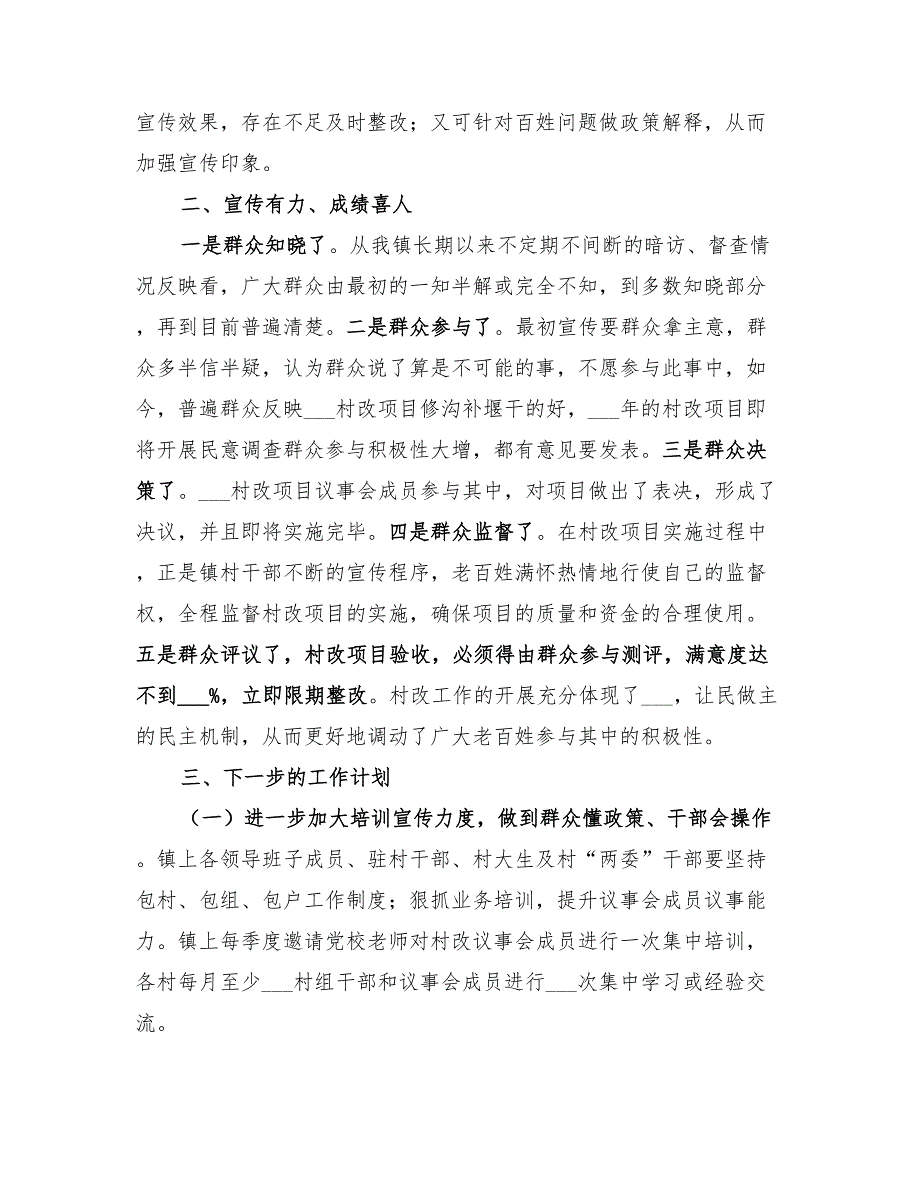 宣传效果，存在不足及时整改；又可针对百姓问题做政策解释，从而
加强宣传印象。
二、宣传有力、成绩喜人
一是群众知晓了。从我镇长期以来不定期不间断的暗访、督查情
况反映看，广大群众由最初的一知半解或完全不知，到多数知晓部分
，再到目前普遍清楚。二是群众参与了。最初宣传要群众拿主意，群
众多半信半疑，认为群众说了算是不可能的事，不愿参与此事中，如
今，普遍群众反映___村改项目修沟补堰干的好，___年的村改项目即
将开展民意调查群众参与积极性大增，都有意见要发表。三是群众决
策了。___村改项目议事会成员参与其中，对项目做出了表决，形成了
决议，并且即将实施完毕。四是群众监督了。在村改项目实施过程中
，正是镇村干部不断的宣传程序，老百姓满怀热情地行使自己的监督
权，全程监督村改项目的实施，确保项目的质量和资金的合理使用。
五是群众评议了，村改项目验收，必须得由群众参与测评，满意度达
不到___%，立即限期整改。村改工作的开展充分体现了___，让民做主
的民主机制，从而更好地调动了广大老百姓参与其中的积极性。
三、下一步的工作计划
（一）进一步加大培训宣传力度，做到群众懂政策、干部会操作
。镇上各领导班子成员、驻村干部、村大生及村“两委”干部要坚持
包村、包组、包户工作制度；狠抓业务培训，提升议事会成员议事能
力。镇上每季度邀请党校老师对村改议事会成员进行一次集中培训，
各村每月至少___村组干部和议事会成员进行___次集中学习或经验交
流。